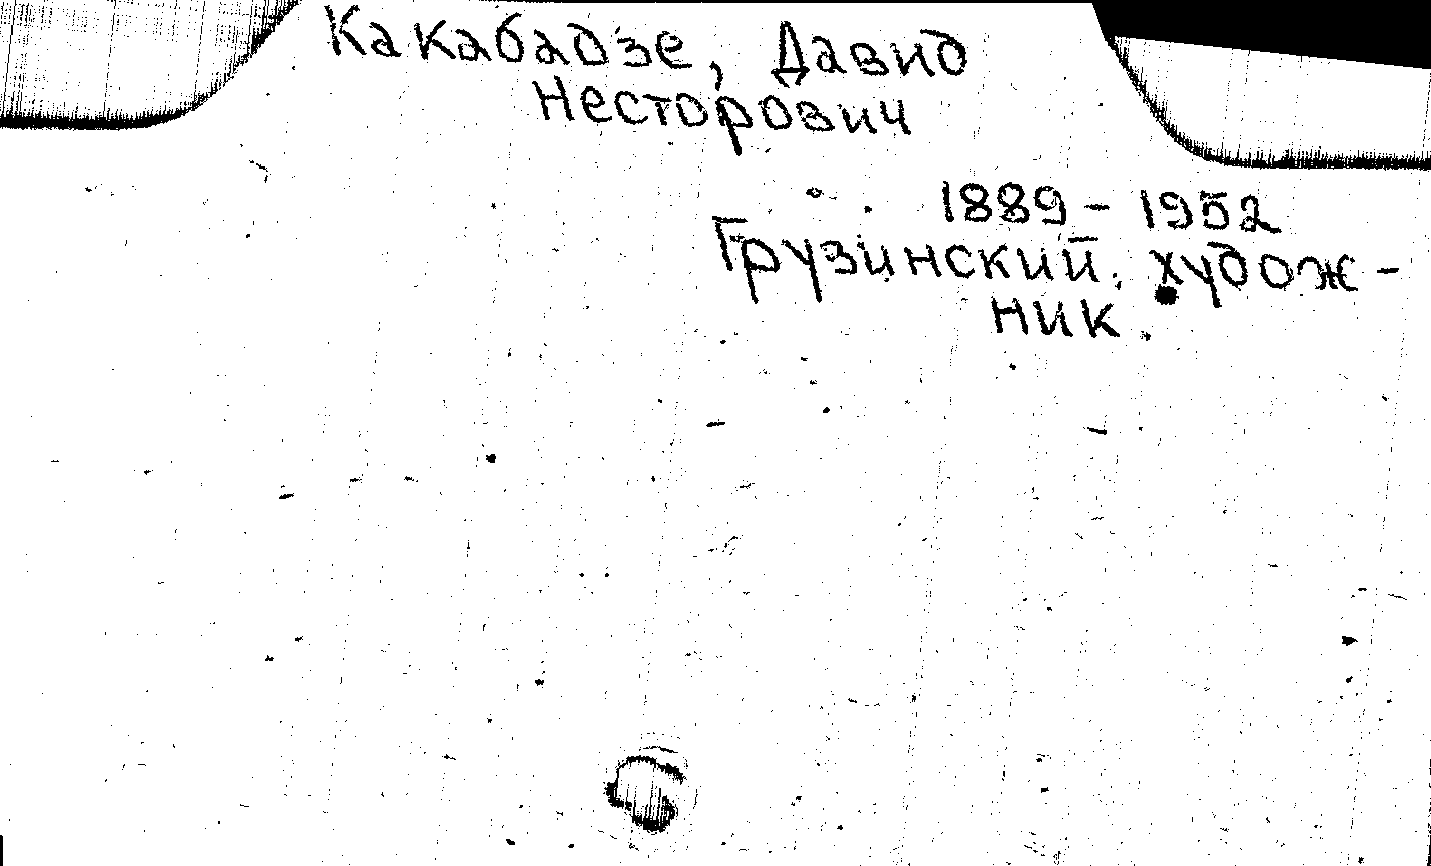 Какабадзе, Давид
Несторович
1889-1952
Грузинский худож-
ник.